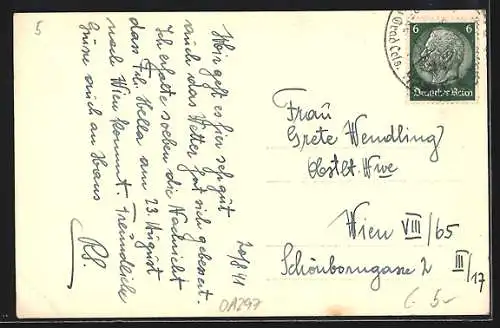 5
20/8 41
Mir geht es hier sehr gut
auch das Wetter hat sich gebessert.
Ich erhalte soeben die Nachricht
dass Frl. Hella am 23. August
nach Wien kommt. Freundliche
Grüsse auch an Hans
Grad Cels.
6 6
Deutsches Reich
Frau
Grete Wendling
Obstlt. Wwe
Wien VIII/65
Schönborngasse 2 III/17
OA297
5-